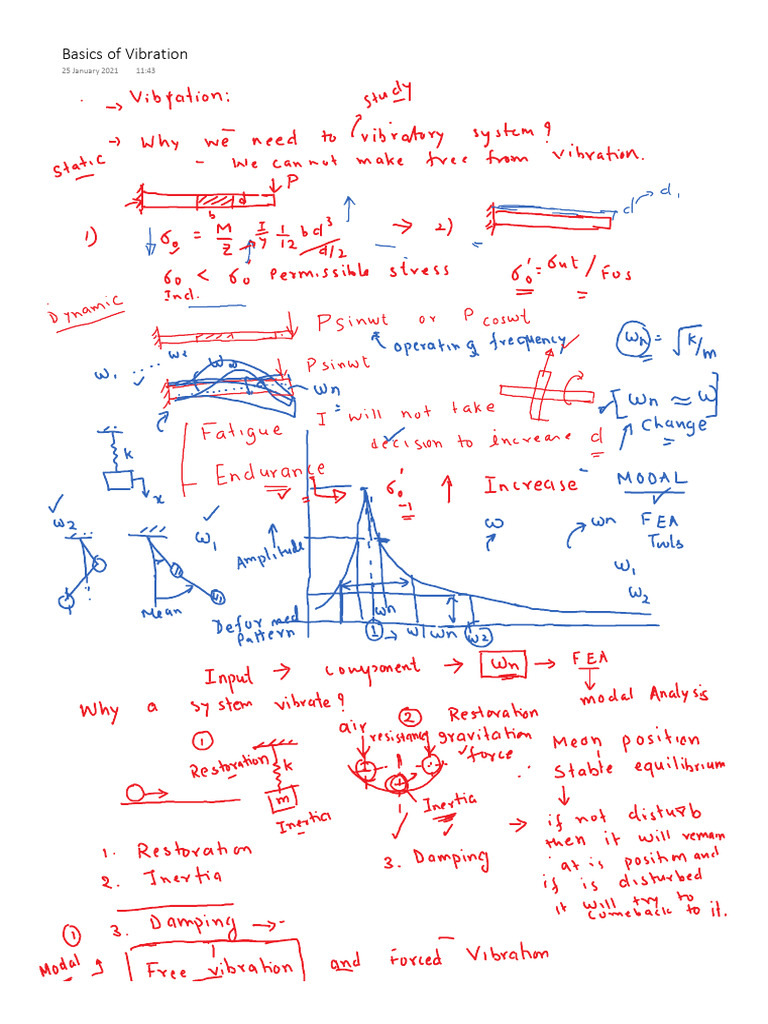 Basics of Vibration
25 January 2021 11:43
→ Vibration:
study
→ Why we need to vibratory system?
Static
- We cannot make free from vibration.
P
d
b
d → d1
1) ↓ σo = M/Z I/y 1/12 bd³ / d/2 → 2)
σo < σo Permissible stress
Incl.
σo' = σut / Fos
Dynamic
Psinwt or P coswt
operating frequency
wn = √k/m
w1 w2 wn
Psinwt
wn
[wn ≈ w]
Change
I will not take
decision to increase d
Fatigue
Endurance
k
x
σo' -1 ↑ Increase
MODAL
w wn FEA
Tools
w1
w2
w2
w1
Mean
Amplitude
Deformed
Pattern
wn
1 → w | wn w2
Input → component → wn → FEA
modal Analysis
Why a system vibrate?
1
Restoration
k
m
Inertia
air
resistance
2 Restoration
gravitation
force
Inertia
3. Damping
Mean position
Stable equilibrium
→ if not disturb
then it will remain
at is position and
if is disturbed
it will try to
comeback to it.
1. Restoration
2. Inertia
3. Damping →
1
Modal
Free vibration and Forced Vibration